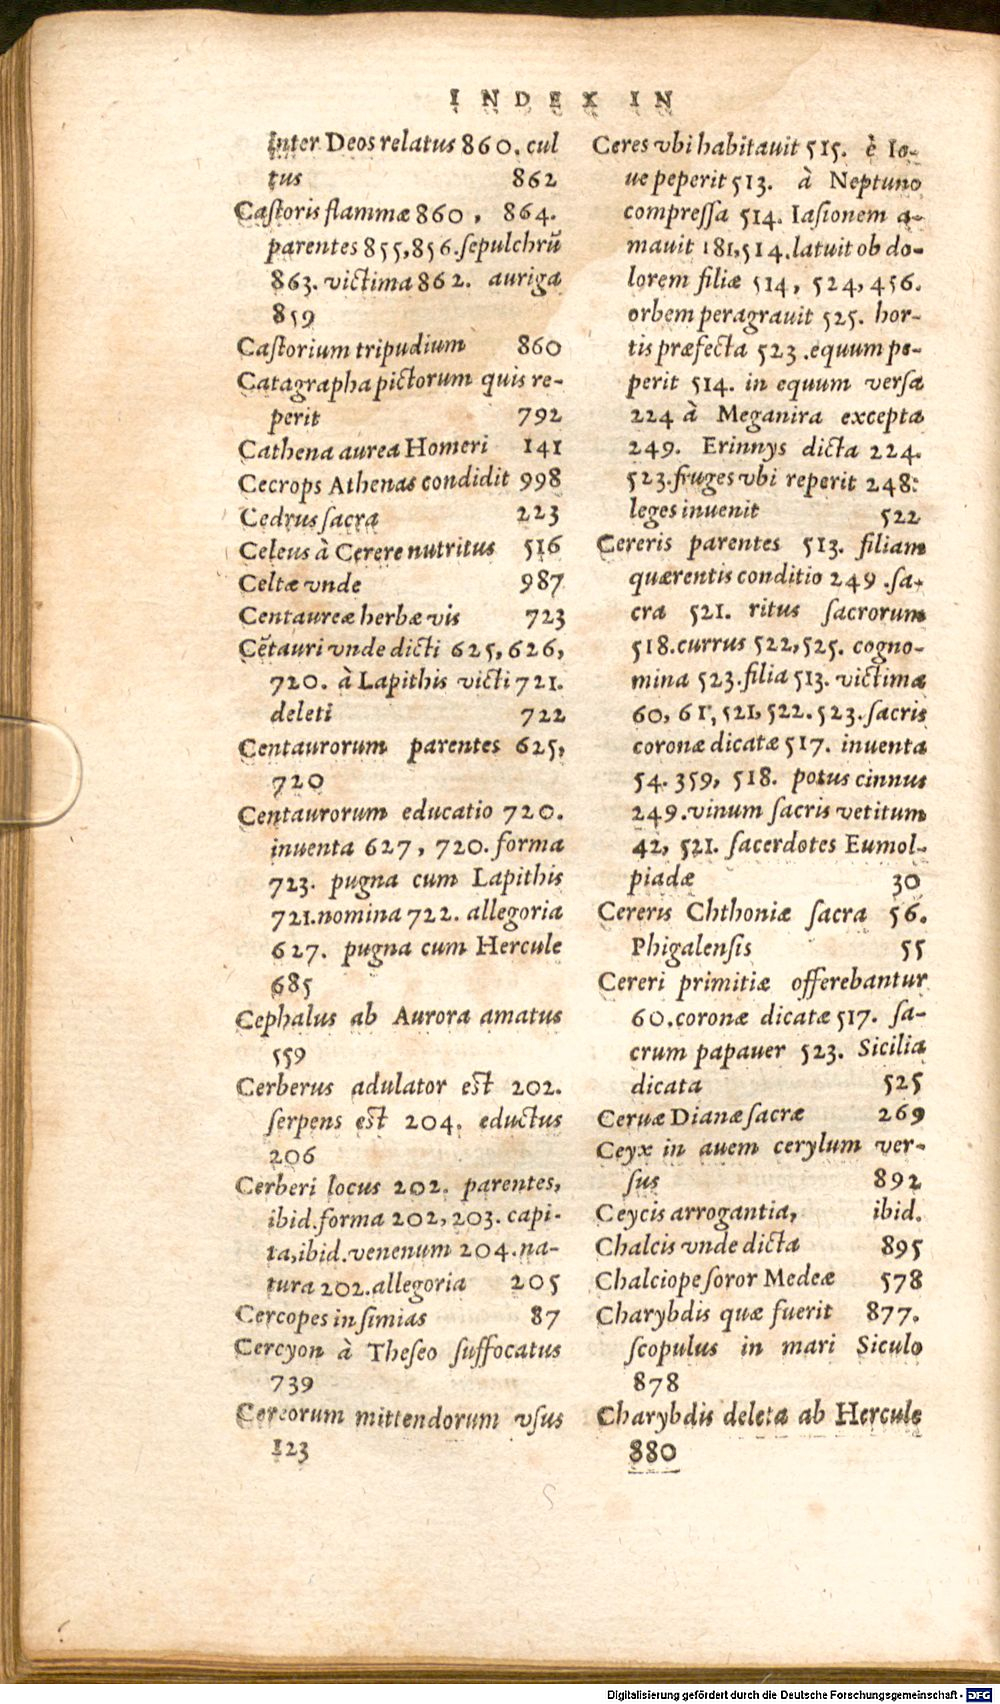 INDEX IN
Inter Deos relatus 860. cul
tus 862
Caſtoris flammæ 860, 864.
parentes 855,856.ſepulchrũ
863. victima 862. auriga
859
Caſtorium tripudium 860
Catagrapha pictorum quis re-
perit 792
Cathena aurea Homeri 141
Cecrops Athenas condidit 998
Cedrus ſacra 223
Celeus à Cerere nutritus 516
Celtæ vnde 987
Centaureæ herbæ vis 723
Cẽtauri vnde dicti 625,626,
720. à Lapithis victi 721.
deleti 722
Centaurorum parentes 625,
720
Centaurorum educatio 720.
inuenta 627, 720. forma
723. pugna cum Lapithis
721.nomina 722. allegoria
627. pugna cum Hercule
685
Cephalus ab Aurora amatus
559
Cerberus adulator eſt 202.
ſerpens eſt 204. eductus
206
Cerberi locus 202. parentes,
ibid.forma 202,203. capi-
ta,ibid.venenum 204.na-
tura 202.allegoria 205
Cercopes in ſimias 87
Cercyon à Theſeo ſuffocatus
739
Cereorum mittendorum vſus
123
Ceres vbi habitauit 515. è Io-
ue peperit 513. à Neptuno
compreſſa 514. Iaſionem a-
mauit 181,514.latuit ob do-
lorem filiæ 514, 524,456.
orbem peragrauit 525. hor-
tis præfecta 523.equum pe-
perit 514. in equum verſa
224 à Meganira excepta
249. Erinnys dicta 224.
523.fruges vbi reperit 248:
leges inuenit 522
Cereris parentes 513. filiam
quærentis conditio 249.ſa-
cra 521. ritus ſacrorum
518.currus 522,525. cogno-
mina 523.filia 513. victimæ
60, 61, 521, 522. 523.ſacris
coronæ dicatæ 517. inuenta
54. 359, 518. potus cinnus
249.vinum ſacris vetitum
42, 521. ſacerdotes Eumol-
piadæ 30
Cereris Chthoniæ ſacra 56.
Phigalenſis 55
Cereri primitiæ offerebantur
60.coronæ dicatæ 517. ſa-
crum papauer 523. Sicilia
dicata 525
Ceruæ Dianæ ſacræ 269
Ceyx in auem cerylum ver-
ſus 892
Ceycis arrogantia, ibid.
Chalcis vnde dicta 895
Chalciope ſoror Medeæ 578
Charybdis quæ fuerit 877.
ſcopulus in mari Siculo
878
Charybdis deleta ab Hercule
880
Digitalisierung gefördert durch die Deutsche Forschungsgemeinschaft - DFG